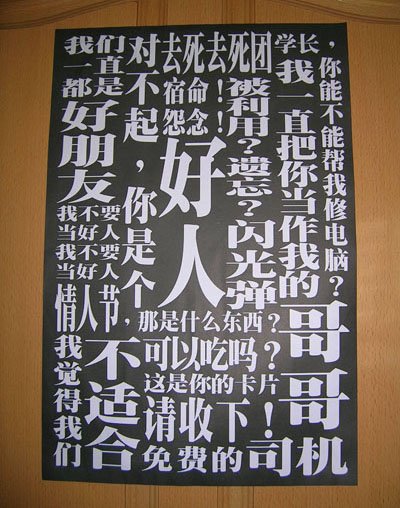 我们
一直
都是
好朋友
我不要
当好人
我不要
当好人
情人节，
我觉得我们
不适合
对不起，你是个
好人
去死去死团
宿命！
怨念！
被利用？遗忘？闪光弹
学长，
你能不能帮我修电脑？
我一直把你当作我的
哥哥
那是什么东西？
可以吃吗？
这是你的卡片
请收下！
免费的司机